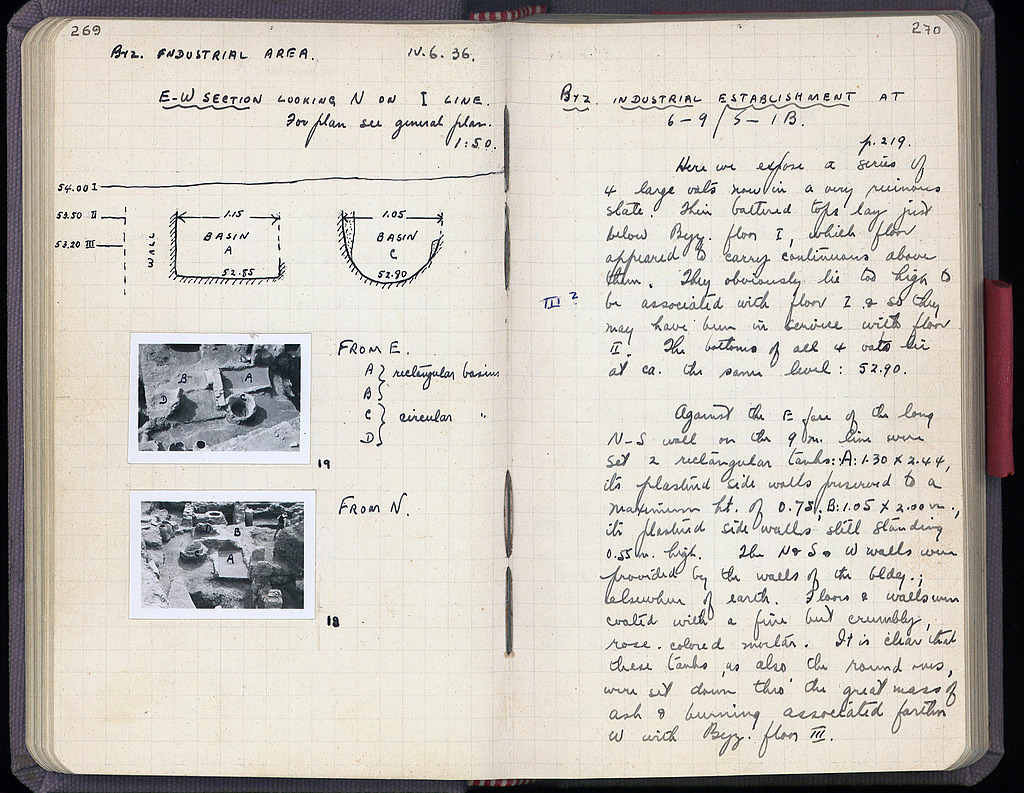 269
Byz. INDUSTRIAL AREA. IV. 6. 36.
E-W SECTION LOOKING N ON I LINE.
For plan see general plan.
1:50.
54.00 I
53.50 II
53.20 III
WALL
1.15
BASIN
A
52.85
1.05
BASIN
C
52.90
B A
D C
FROM E.
A } rectangular basins
B
C } circular "
D
19
D B
A
FROM N.
18
270
Byz. INDUSTRIAL ESTABLISHMENT AT
6-9/5-1B.
p. 219.
Here we expose a series of
4 large vats now in a very ruinous
state. Their battered tops lay just
below Byz. floor I, which floor
appeared to carry continuous above
them. They obviously lie too high to
III ?
be associated with floor I & so they
may have been in service with floor
II. The bottoms of all 4 vats lie
at ca. the same level: 52.90.
Against the E face of the long
N-S wall on the 9 m. line were
set 2 rectangular tanks: A: 1.30 x 2.44,
its plastered side walls preserved to a
maximum ht. of 0.75; B: 1.05 x 2.00 m.,
its plastered side walls still standing
0.55 m. high. The N & S & W walls were
provided by the walls of the bldg.;
elsewhere of earth. Floors & walls were
coated with a fine but crumbly,
rose-colored mortar. It is clear that
these tanks, as also the round ones,
were set down thro' the great mass of
ash & burning associated farther
W with Byz. floor III.